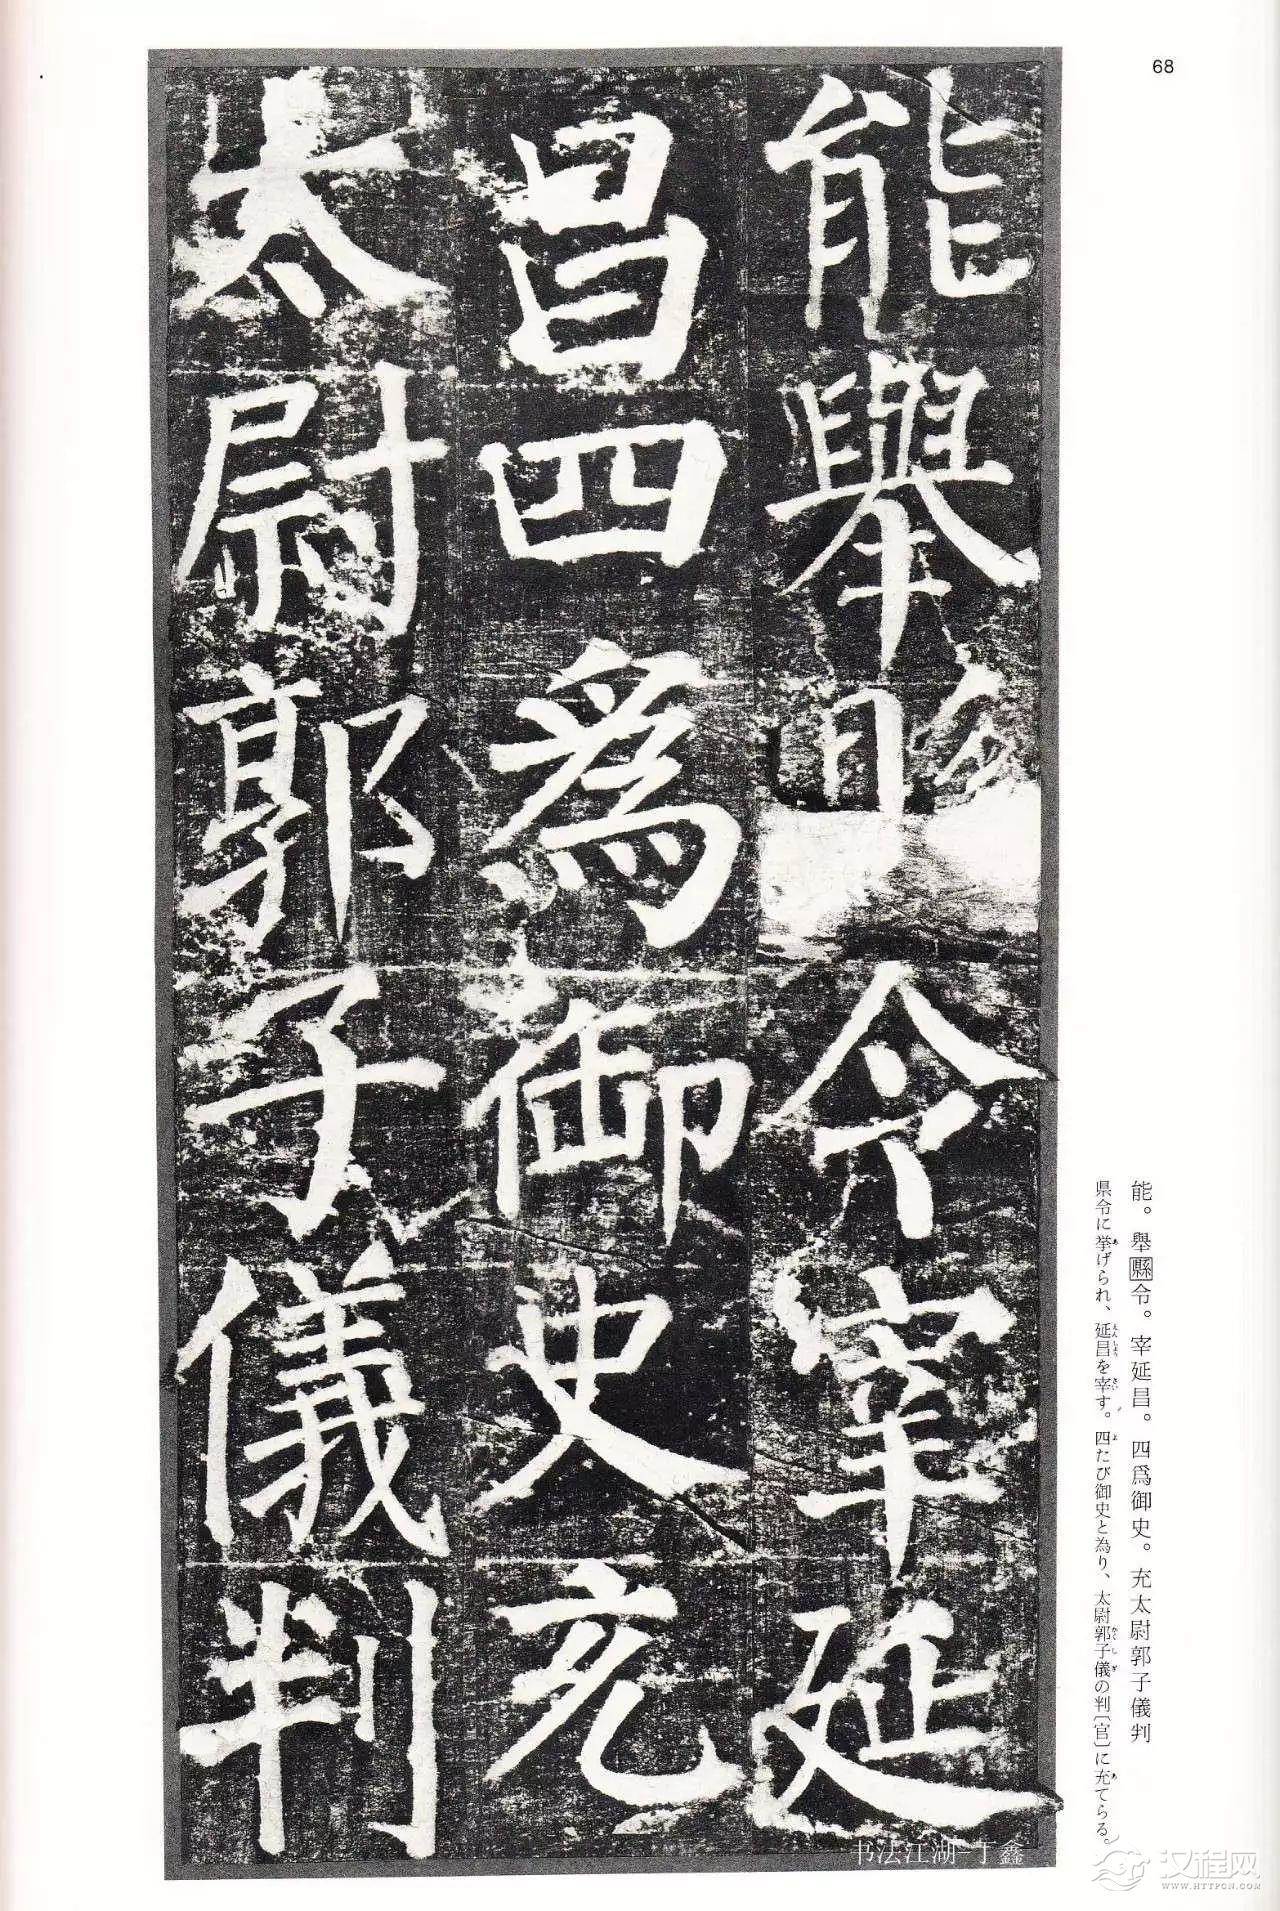 68
能舉縣令宰延
昌四爲御史充
太尉郭子儀判
能。舉縣令。宰延昌。四爲御史。充太尉郭子儀判
県令に挙げられ、延昌を宰す。四たび御史と為り、太尉郭子儀の判〔官〕に充てらる。
书法江湖-丁鑫
汉程网
WWW.HTTPCN.COM